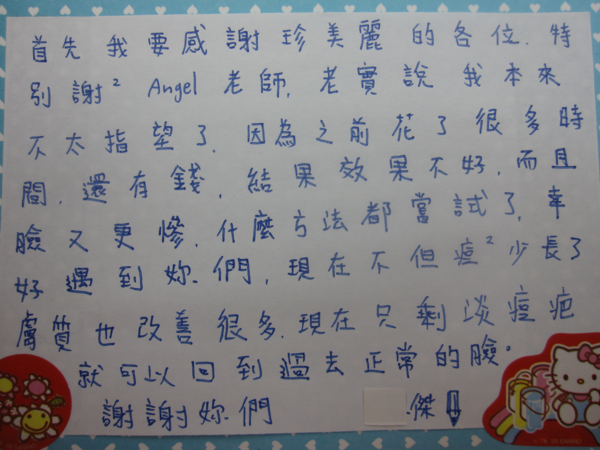 首先我要感謝珍美麗的各位.特
別謝² Angel 老師,老實說我本來
不太指望了.因為之前花了很多時
間,還有錢,結果效果不好,而且
臉又更慘,什麼方法都嘗試了,幸
好遇到妳們,現在不但痘²少長了
膚質也改善很多.現在只剩淡痘疤
就可以回到過去正常的臉。
謝謝妳們 傑